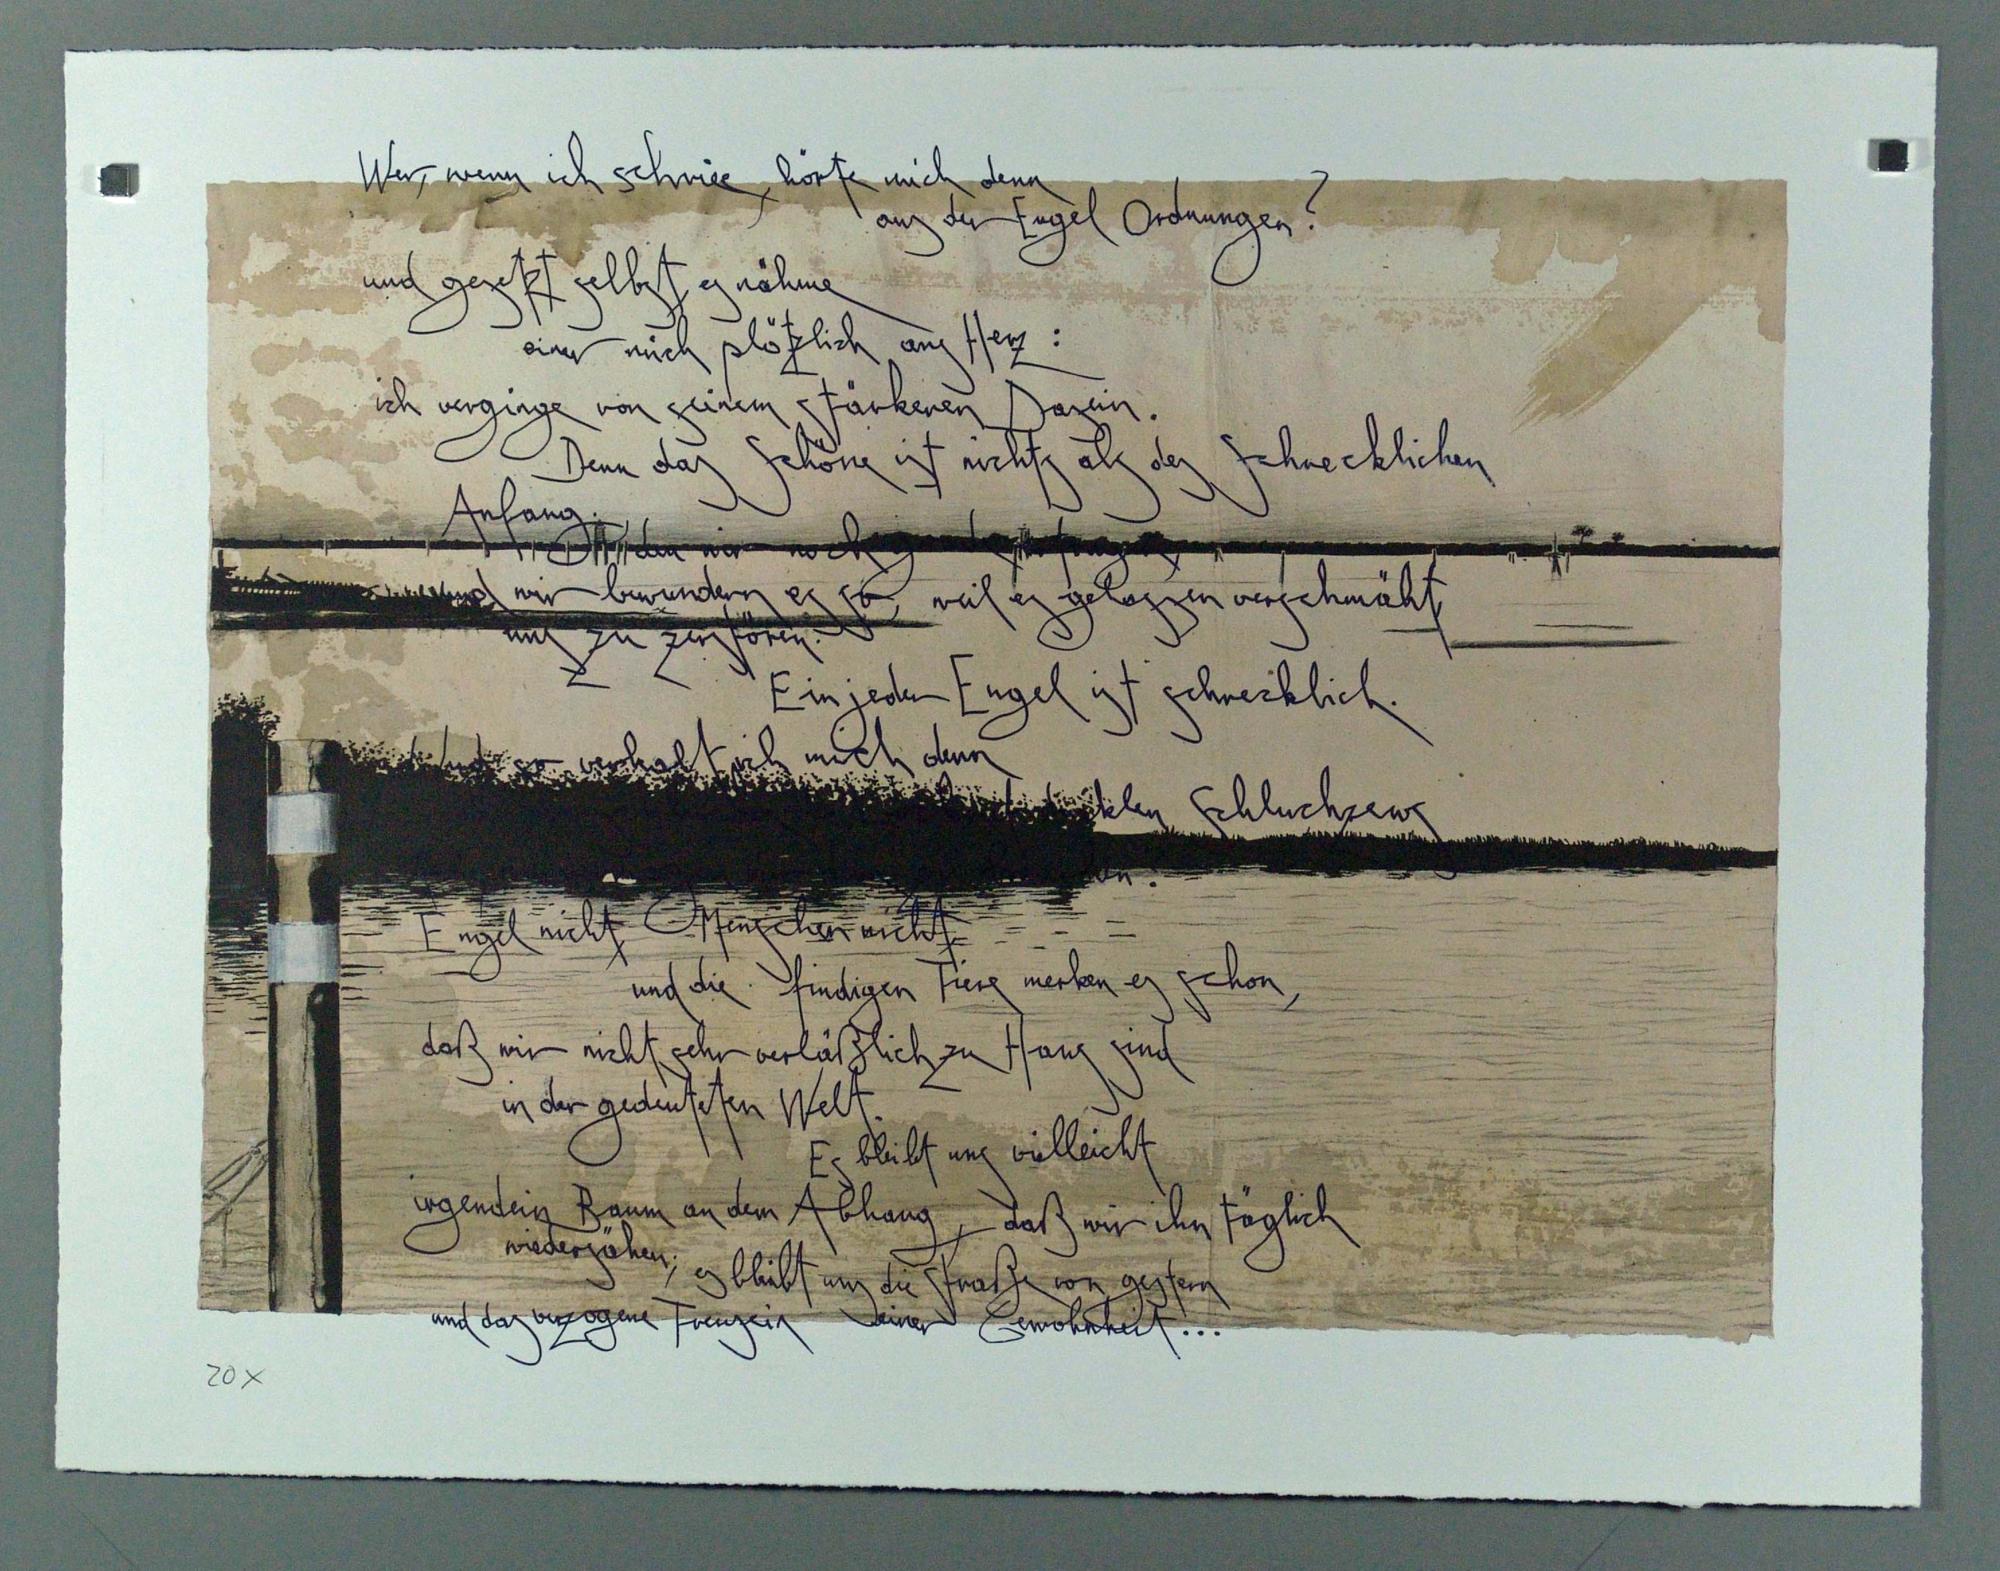 Wer, wenn ich schriee, hörte mich denn
aus der Engel Ordnungen?
und gesetzt selbst, es nähme
einer mich plötzlich ans Herz:
ich verginge von seinem stärkeren Dasein.
Denn das Schöne ist nichts als des Schrecklichen
Anfang,
den wir noch
und wir bewundern es so, weil es gelassen verschmäht,
uns zu zerstören.
Ein jeder Engel ist schrecklich.
Und so verhalt ich mich denn
dunklen Schluchzens
Engel nicht, Menschen nicht,
und die findigen Tiere merken es schon,
daß wir nicht sehr verläßlich zu Haus sind
in der gedeuteten Welt.
Es bleibt uns vielleicht
irgendein Baum an dem Abhang, daß wir ihn täglich
wiedersähen; es bleibt uns die Straße von gestern
und das verzogene Treusein einer Gewohnheit...
20x